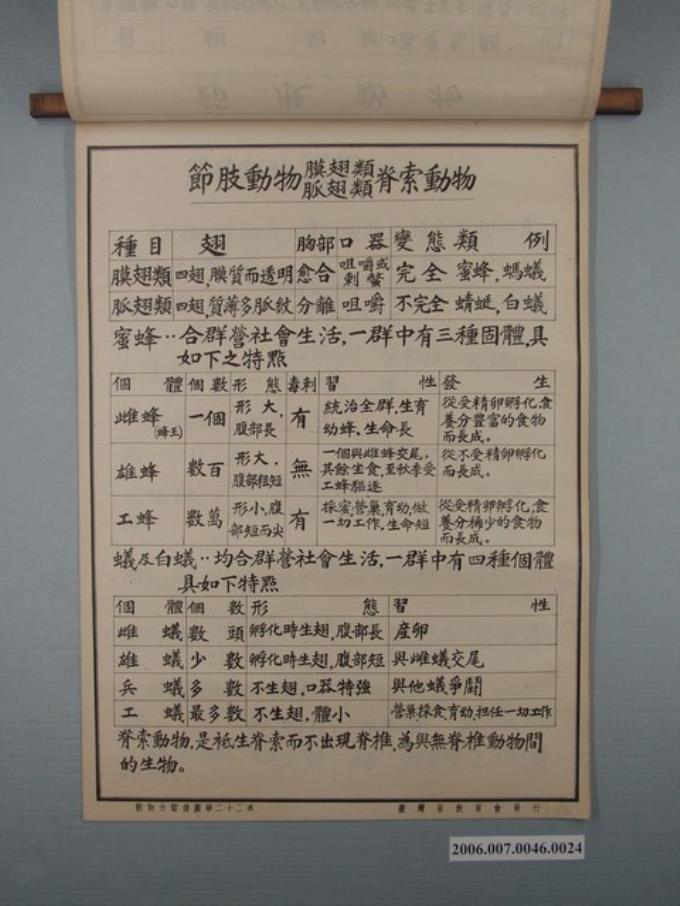 節肢動物 膜翅類 脊索動物
脈翅類
種目 翅 胸部 口器 變態 類例
膜翅類 四翅,膜質而透明 愈合 咀嚼或刺螫 完全 蜜蜂,螞蟻
脈翅類 四翅,質薄多脈紋 分離 咀嚼 不完全 蜻蜓,白蟻
蜜蜂‥合群營社會生活,一群中有三種固體,具
如下之特點
個體 個數 形態 毒刺 習性 發生
雌蜂(蜂王) 一個 形大,腹部長 有 統治全群,生育幼蜂,生命長 從受精卵孵化,食養分豐富的食物而長成。
雄蜂 數百 形大,腹部粗短 無 一個與雌蜂交尾,其餘坐食,至秋季受工蜂驅逐 從不受精卵孵化而長成。
工蜂 數萬 形小,腹部短而尖 有 採蜜,營巢,育幼,做一切工作,生命短 從受精卵孵化,食養分稀少的食物而長成。
蟻及白蟻‥均合群營社會生活,一群中有四種個體
具如下特點
個體 個數 形態 習性
雌蟻 數頭 孵化時生翅,腹部長 產卵
雄蟻 少數 孵化時生翅,腹部短 與雌蟻交尾
兵蟻 多數 不生翅,口器特強 與他蟻爭鬪
工蟻 最多數 不生翅,體小 營巢,採食,育幼,担任一切工作
脊索動物,是祗生脊索而不出現脊椎,為與無脊椎動物間
的生物。
動物分類掛圖第二十二表 臺灣省教育會發行
2006.007.0046.0024